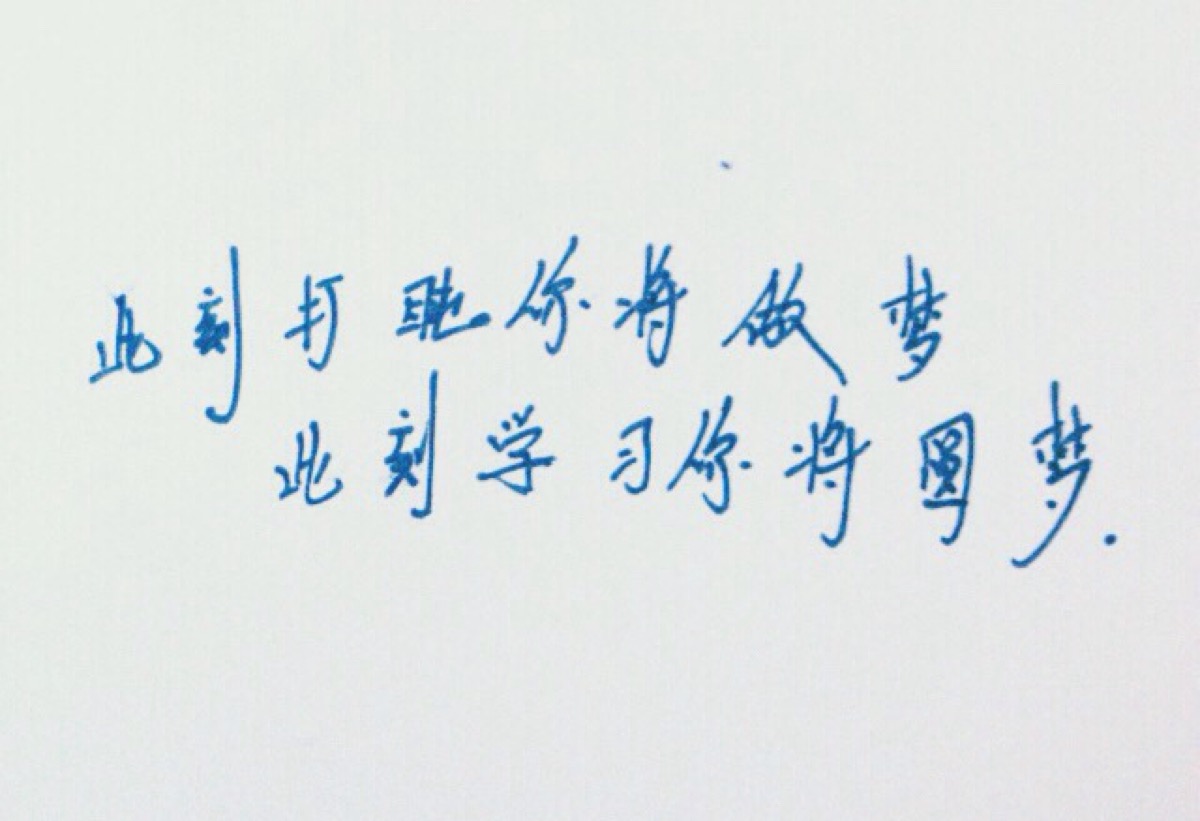 此刻打盹你将做梦
此刻学习你将圆梦.